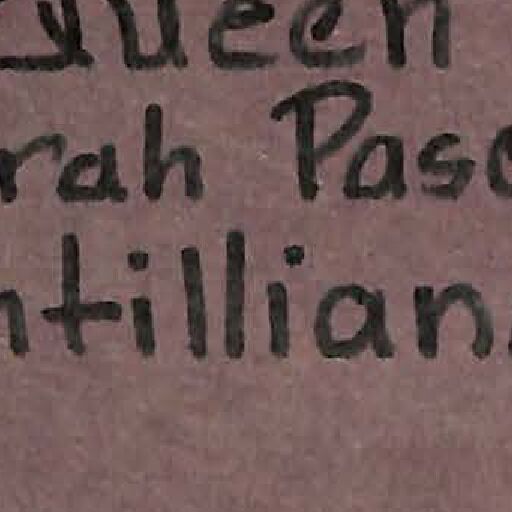 Queen
rah Pasc
ntillian